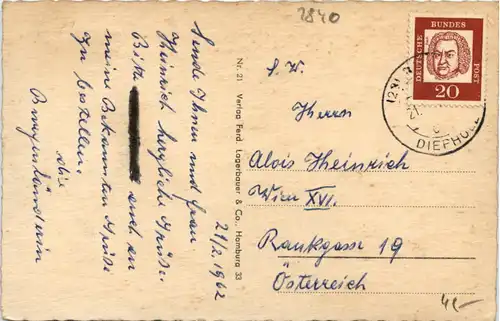 2840
21/2. 1962
Sende Ihnen und Frau
Heinrich herzliche Grüße.
Bitte auch an
meine Bekannten Grüße
zu bestellen.
die
Burgenländerin
Nr. 21 Verlag Ferd. Lagerbauer & Co., Hamburg 33
S. W.
Herrn
Alois Heinrich
Wien XVI.
Rankgasse 19
Österreich
DEUTSCHE BUNDES POST
20
DIEPHOLZ
c
4,-